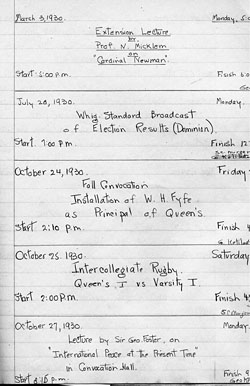 March 3, 1930. Monday,
Extension Lecture
by
Prof. N. Micklem
on
"Cardinal Newman".
Start: 5:00 P.m. Finish
July 28, 1930. Monday
Whig Standard Broadcast
of Election Results (Dominion).
Start. 7:00 P.m Finish 12
October 24, 1930. Friday
Fall Convocation
Installation of W. H. Fyfe
as Principal of Queen's.
Start 2:10 P.m. Finish 4
October 25 1930. Saturday
Intercollegiate Rugby.
Queen's I vs Varsity I.
Start 2:00 P.m Finish 4
October 27, 1930. Monday
Lecture by Sir Geo. Foster, on
"International Peace at the Present Time"
in Convocation Hall.
Start Finish